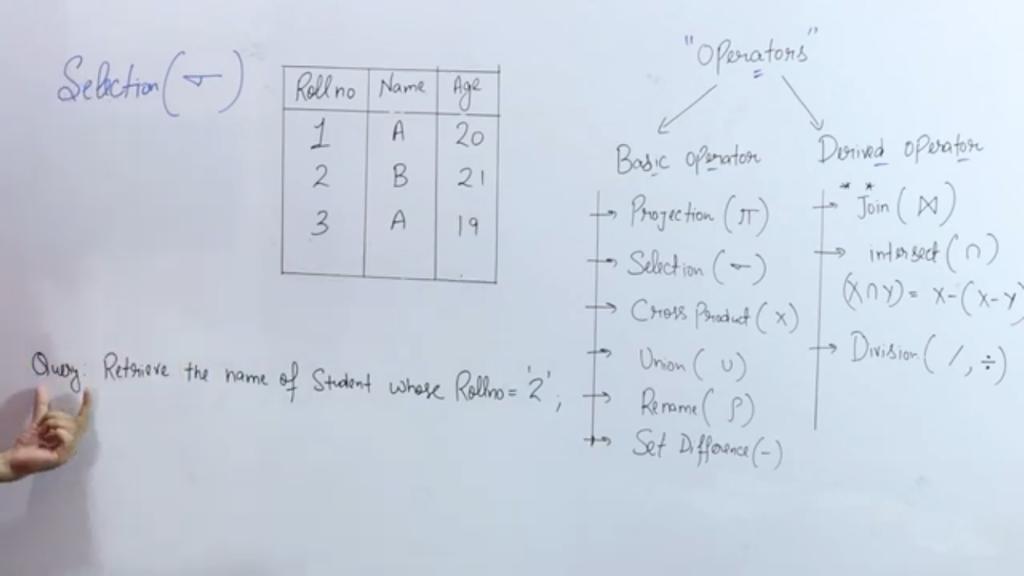 Selection (σ)
Roll no Name Age
1 A 20
2 B 21
3 A 19
Query: Retrieve the name of Student whose Rollno = '2';
"Operators"
Basic operator
→ Projection (π)
→ Selection (σ)
→ Cross Product (×)
→ Union (∪)
→ Rename (ρ)
→ Set Difference (-)
Derived operator
→ *Join* (⋈)
→ intersect (∩)
(X∩Y) = X-(X-Y)
→ Division (/, ÷)